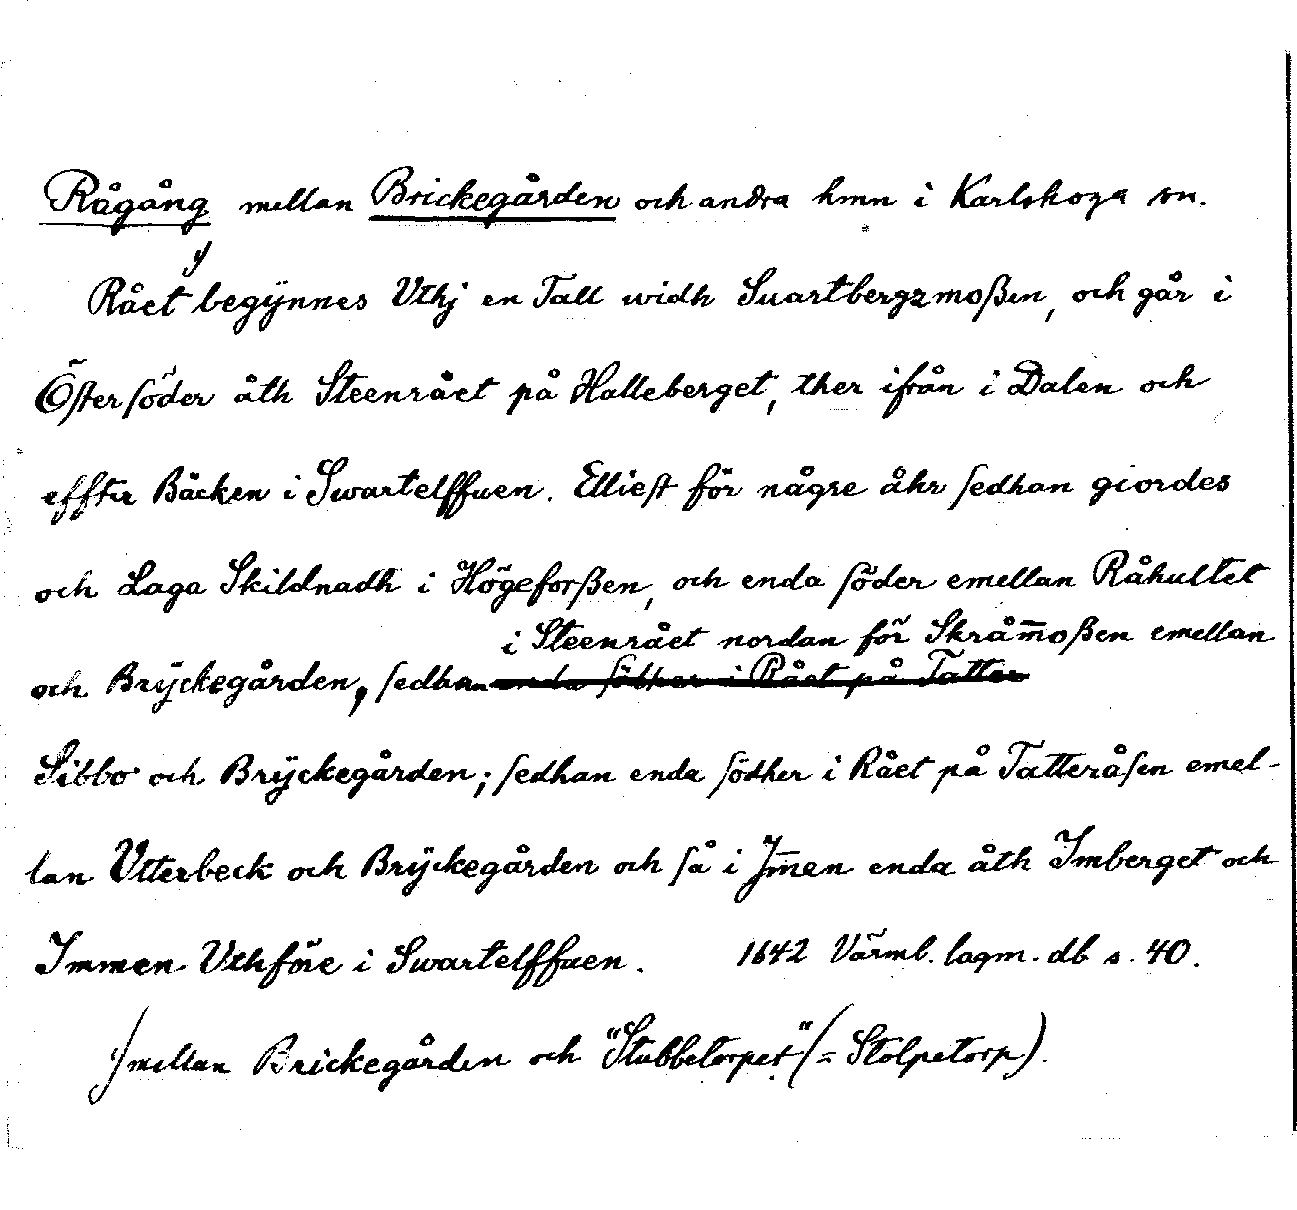 Rågång mellan Brickegården och andra hmn i Karlskoga sn.
y
Rået begÿnnes Vthj en Tall widh Suartbergzmoßen, och går i
Östersöder åth Steenrået på Halleberget, ther ifrån i Dalen och
effter Bäcken i Swartelffuen. Elliest för någre åhr sedhan giordes
och Laga Skildnadh i Högeforßen, och enda söder emellan Råhultet
i Steenrået nordan för Skråm̄oßen emellan
och Brÿckegården, sedhan enda södher i Rået på Tatter
Sibbo och Brÿckegården; sedhan enda södher i Rået på Tatteråsen emel-
lan Vtterbeck och Brÿckegården och så i Jm̄en enda åth Imberget och
Immen Vthföre i Swartelffuen. 1642 Värml. lagm. db s. 40.
y mellan Brickegården och "Stubbetorpet" (= Stolpetorp).